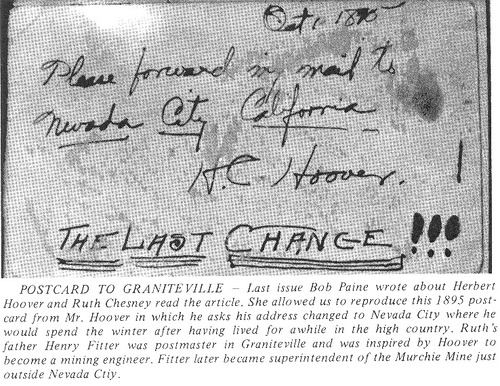 Oct 1, 1895
Please forward my mail to
Nevada City California
H.C. Hoover.
THE LAST CHANGE !!!
POSTCARD TO GRANITEVILLE – Last issue Bob Paine wrote about Herbert
Hoover and Ruth Chesney read the article. She allowed us to reproduce this 1895 post-
card from Mr. Hoover in which he asks his address changed to Nevada City where he
would spend the winter after having lived for awhile in the high country. Ruth's
father Henry Fitter was postmaster in Graniteville and was inspired by Hoover to
become a mining engineer. Fitter later became superintendent of the Murchie Mine just
outside Nevada Ctiy.